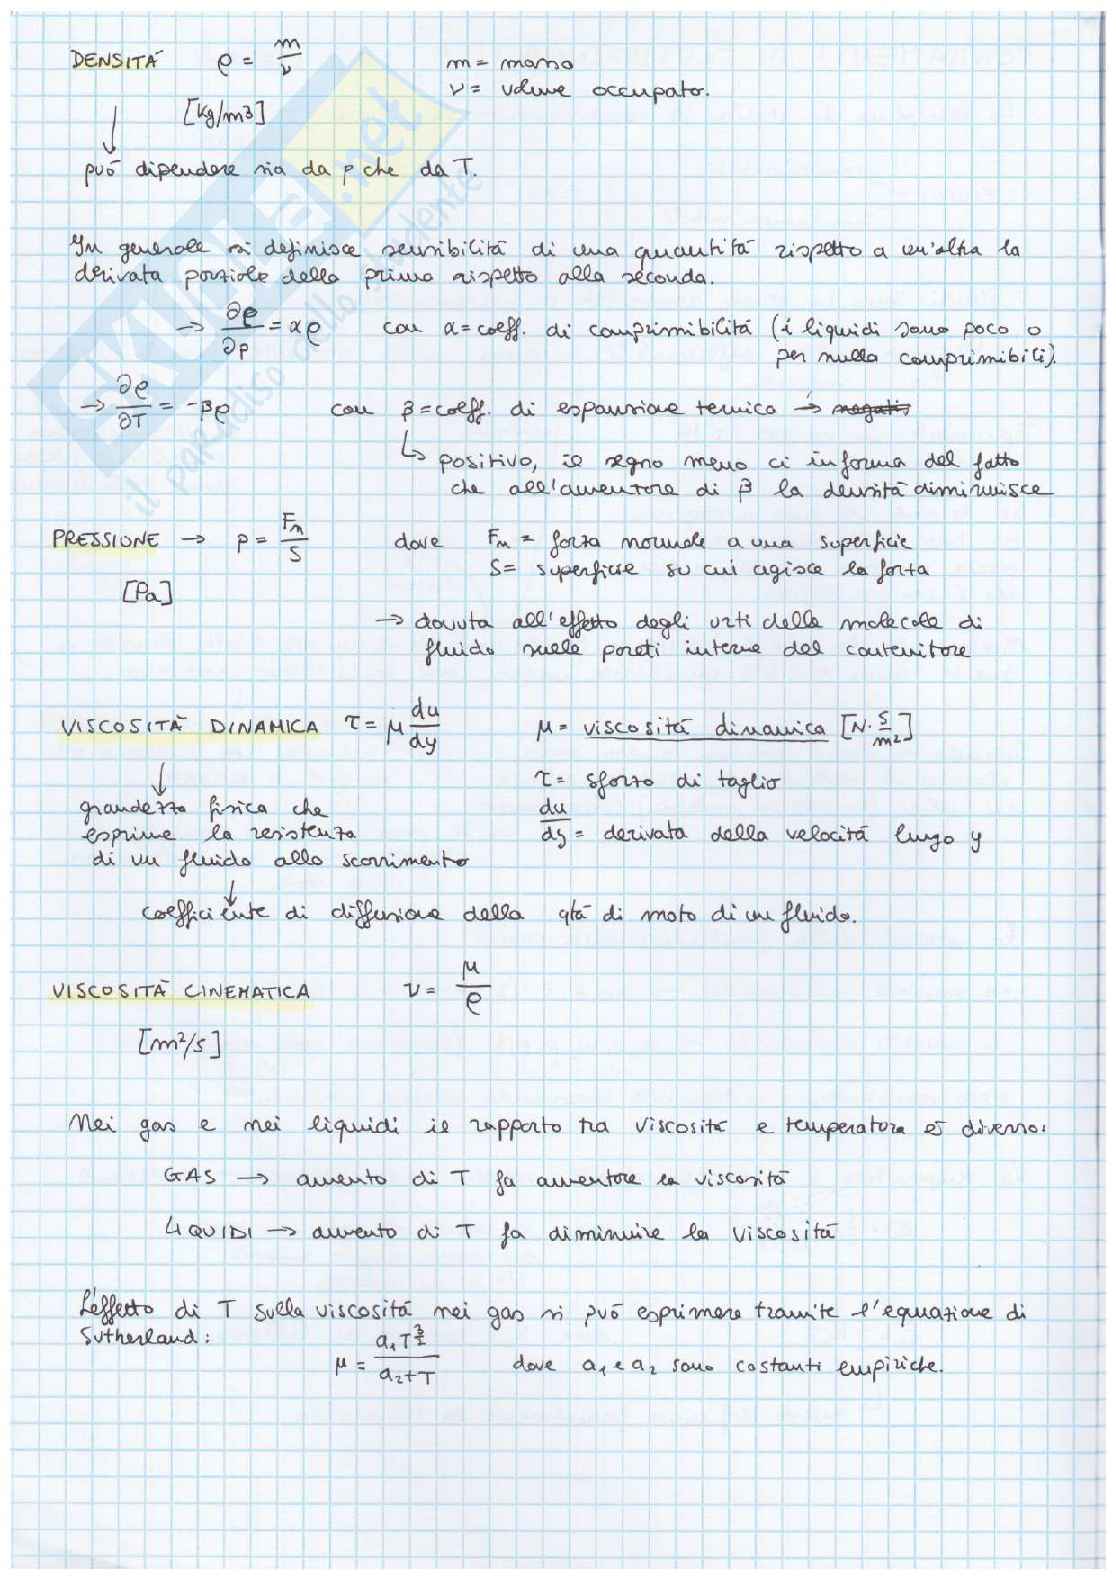 DENSITÀ ρ = m/v m = massa
v = volume occupato.
[kg/m3]
può dipendere sia da p che da T.
In generale si definisce sensibilità di una quantità rispetto a un'altra la
derivata parziale della prima rispetto alla seconda.
→ ∂ρ/∂p = αρ con α = coeff. di comprimibilità (i liquidi sono poco o
per nulla comprimibili).
→ ∂ρ/∂T = -βρ con β = coeff. di espansione termica →
↳ positivo, il segno meno ci informa del fatto
che all'aumentare di β la densità diminuisce
PRESSIONE → p = Fn/S dove Fn = forza normale a una superficie
S = superficie su cui agisce la forza
[Pa]
→ dovuta all'effetto degli urti delle molecole di
fluido sulle pareti interne del contenitore
VISCOSITÀ DINAMICA τ = μ du/dy μ = viscosità dinamica [N·s/m²]
τ = sforzo di taglio
grandezza fisica che
du/dy = derivata della velocità lungo y
esprime la resistenza
di un fluido allo scorrimento
coefficiente di diffusione della qtà di moto di un fluido.
VISCOSITÀ CINEMATICA ν = μ/ρ
[m²/s]
Nei gas e nei liquidi il rapporto tra viscosità e temperatura è diverso:
GAS → aumento di T fa aumentare la viscosità
LIQUIDI → aumento di T fa diminuire la viscosità
L'effetto di T sulla viscosità nei gas si può esprimere tramite l'equazione di
Sutherland:
μ = a₁T^(3/2) / (a₂+T) dove a₁ e a₂ sono costanti empiriche.
SKUOLA.net
il paradiso dello studente